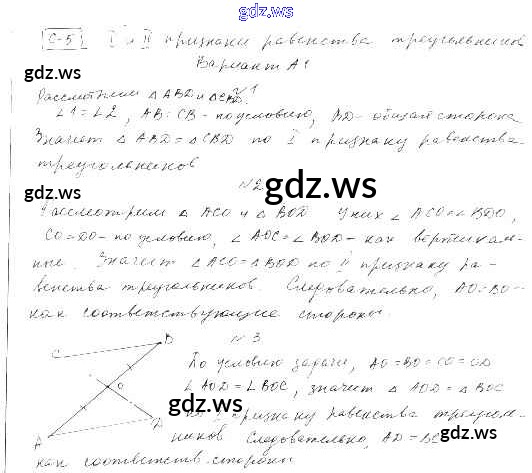 gdz.ws
С-5 I и II признаки равенства треугольников
Вариант А1
gdz.ws
№1
gdz.ws
Рассмотрим △ ABD и △CBD.
∠1=∠2, AB=CB - по условию, BD - общая сторона
Значит △ ABD = △CBD по I признаку равенства
треугольников
№2
gdz.ws
gdz.ws
gdz.ws
Рассмотрим △ ACO и △ BOD У них ∠ ACO=∠ BDO,
CO=DO- по условию, ∠ AOC=∠ BOD - как вертикаль-
ные. Значит △ ACO=△ BOD по II признаку ра-
венства треугольников. Следовательно, AO=BO-
как соответствующие стороны
№ 3
C B
По условию задачи, AO=BO=CO=OD
O
∠ AOD = ∠ BOC, значит △ AOD = △ BOC
gdz.ws
A D
признаку равенства треуголь-
ников Следовательно, AD =
gdz.ws
как соответств. стороны
gdz.ws